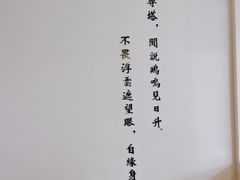 尋塔，聞說鷄鳴見日升
不畏浮雲遮望眼，自緣身